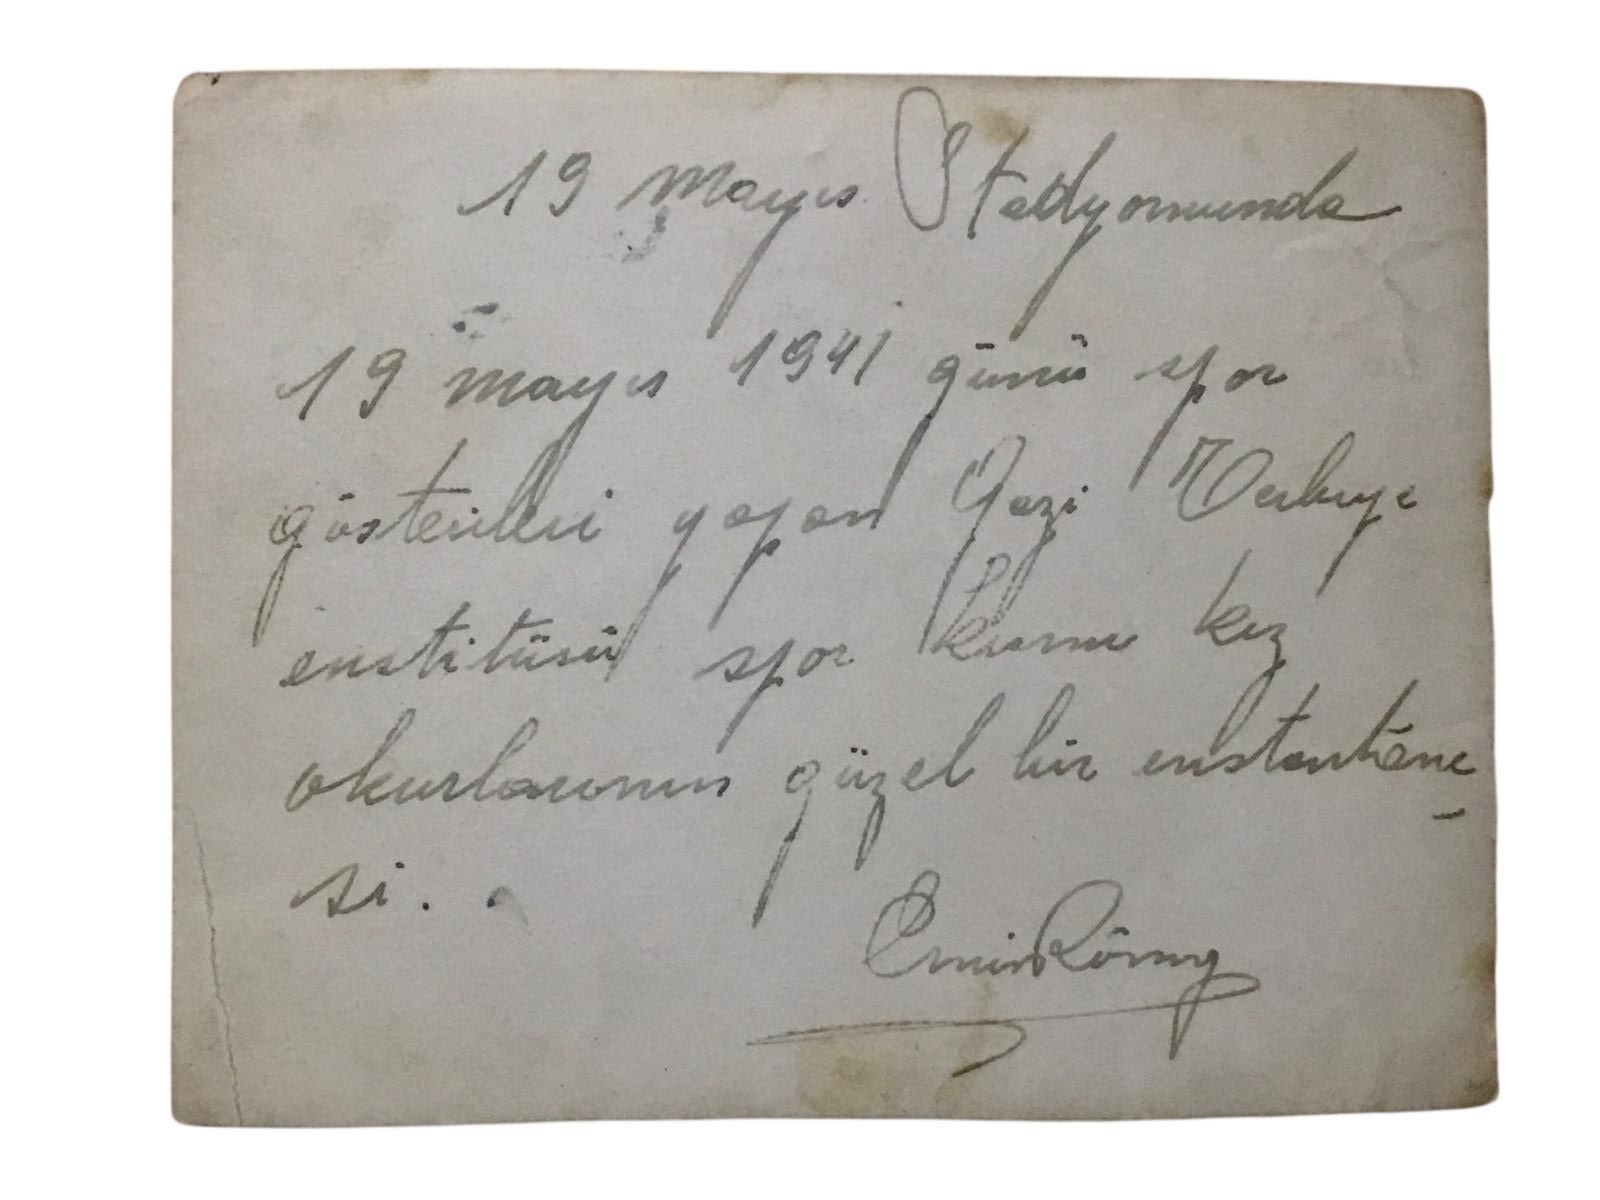 19 Mayıs Stadyomunda
19 mayıs 1941 günü spor
gösterileri yapan Gazi Terbiye
enstitüsü spor kısmı kız
okurlarının güzel bir enstantane
si.
Emin